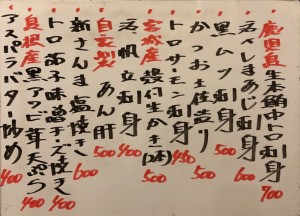 鹿児島 生本鮪中トロ刺身 700
活〆しまあじ刺身 600
黒ムツ刺身 500
かつお土佐造り 500
トロサーモン刺身 450
宮城産 殻付生かき(2ケ) 500
活帆立刺身 400
自家製 あん肝 500
新さんま塩焼き 600
トロ茄子味噌チーズ焼 400
島根産 黒アワビ茸天ぷら 400
アスパラバター炒め 400